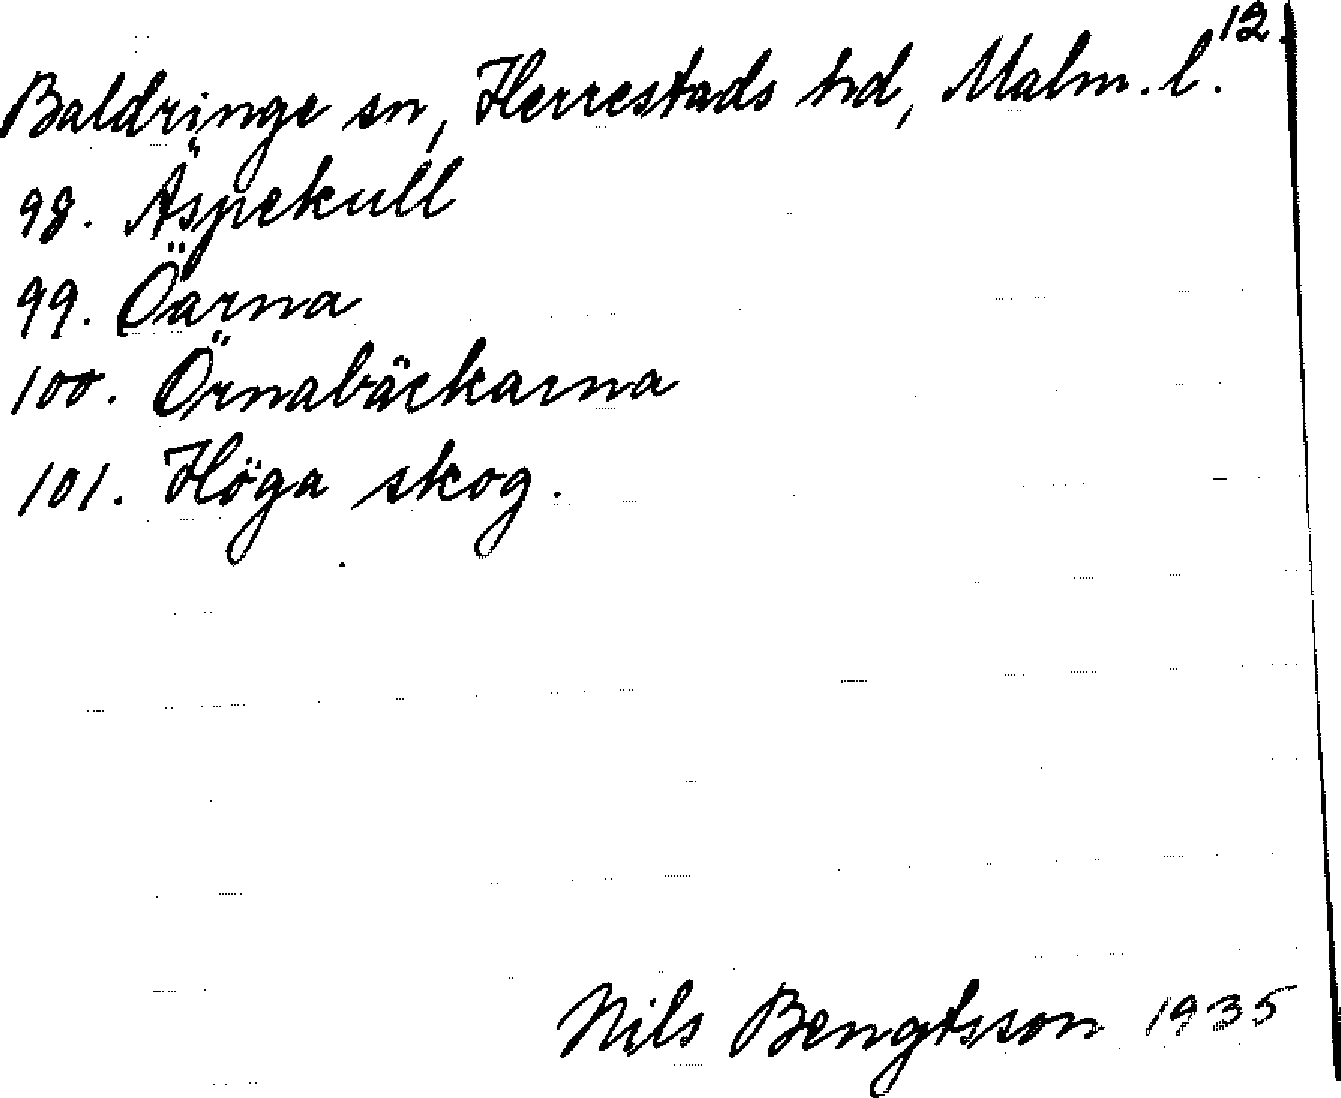 12.
Baldringe sn, Herrestads hd, Malm. l.
98. Äspekull
99. Öarna
100. Örnabäckarna
101. Höga skog.
Nils Bengtsson 1935